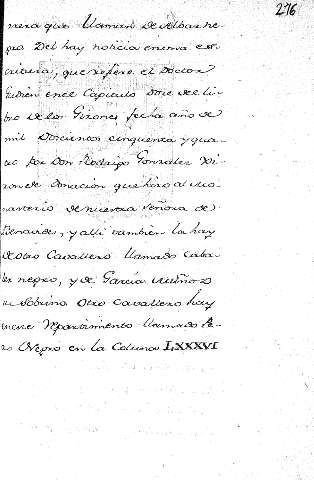 276
nera que llaman De Albar ne
gro Del hay noticia en una es
critura, que refiere el Doctor
Gudiel en el Capitulo doce del li
bro de los Girones fecha año de
mil Doscientos cinquenta y qua
tro por Don Rodrigo Gonzalez Xi
ron de Donacion que hizo al Mo
nasterio de nuestra Señora de
Benavides, y alli tambien la hay
de otro Cavallero llamado Caba
ler negro, y de Garcia Muñoz
su Sobrino Otro Cavallero hay
en este repartimiento llamado Pe
ro Negro en la Coluna LXXXVI